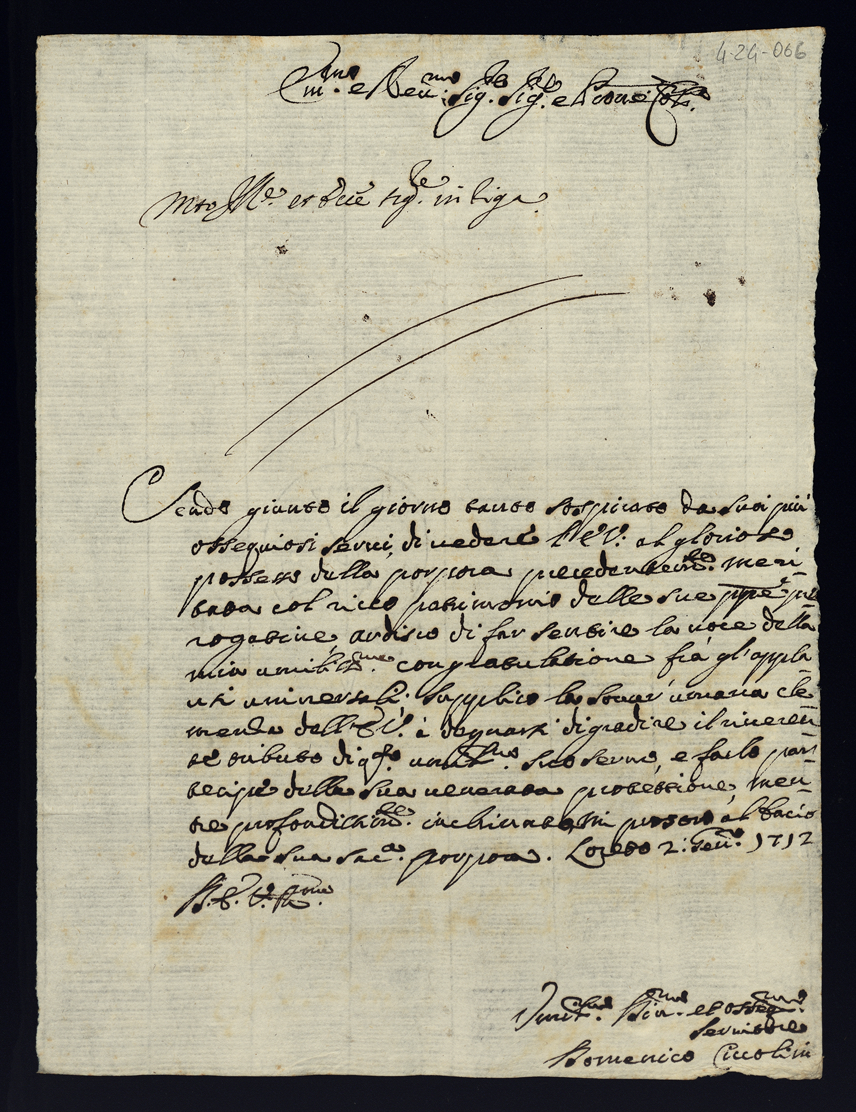 4-24-066
Em.mo e Rev.mo Sig.re Sig.re e Pron Col.mo
Sendo giunto il giorno tanto sospirato da suoi più
ossequiosi servi, di vedere l'E.V. al glorioso
possesso della porpora precedentem.te meri-
tata col ricco patrimonio delle sue prè
rogative, ardisco di far sentire la voce della
mia umiliss.ma congratulatione frà gl'appla
usi universali. Supplico la sour'umana cle-
menza dell'E.V. à degnarsi di gradire il riveren-
te tributo di q.sto umil.mo suo servo, e farlo par-
tecipe della sua venerata protettione, men-
tre profondissim.te inchinato mi porto al bacio
della sua sac.a porpora. Loreto 2: Gen.o 1712
D.E.V. R.ma
Umil.mo Div.mo et osseq.mo
Servitore
Domenico Ciccolini